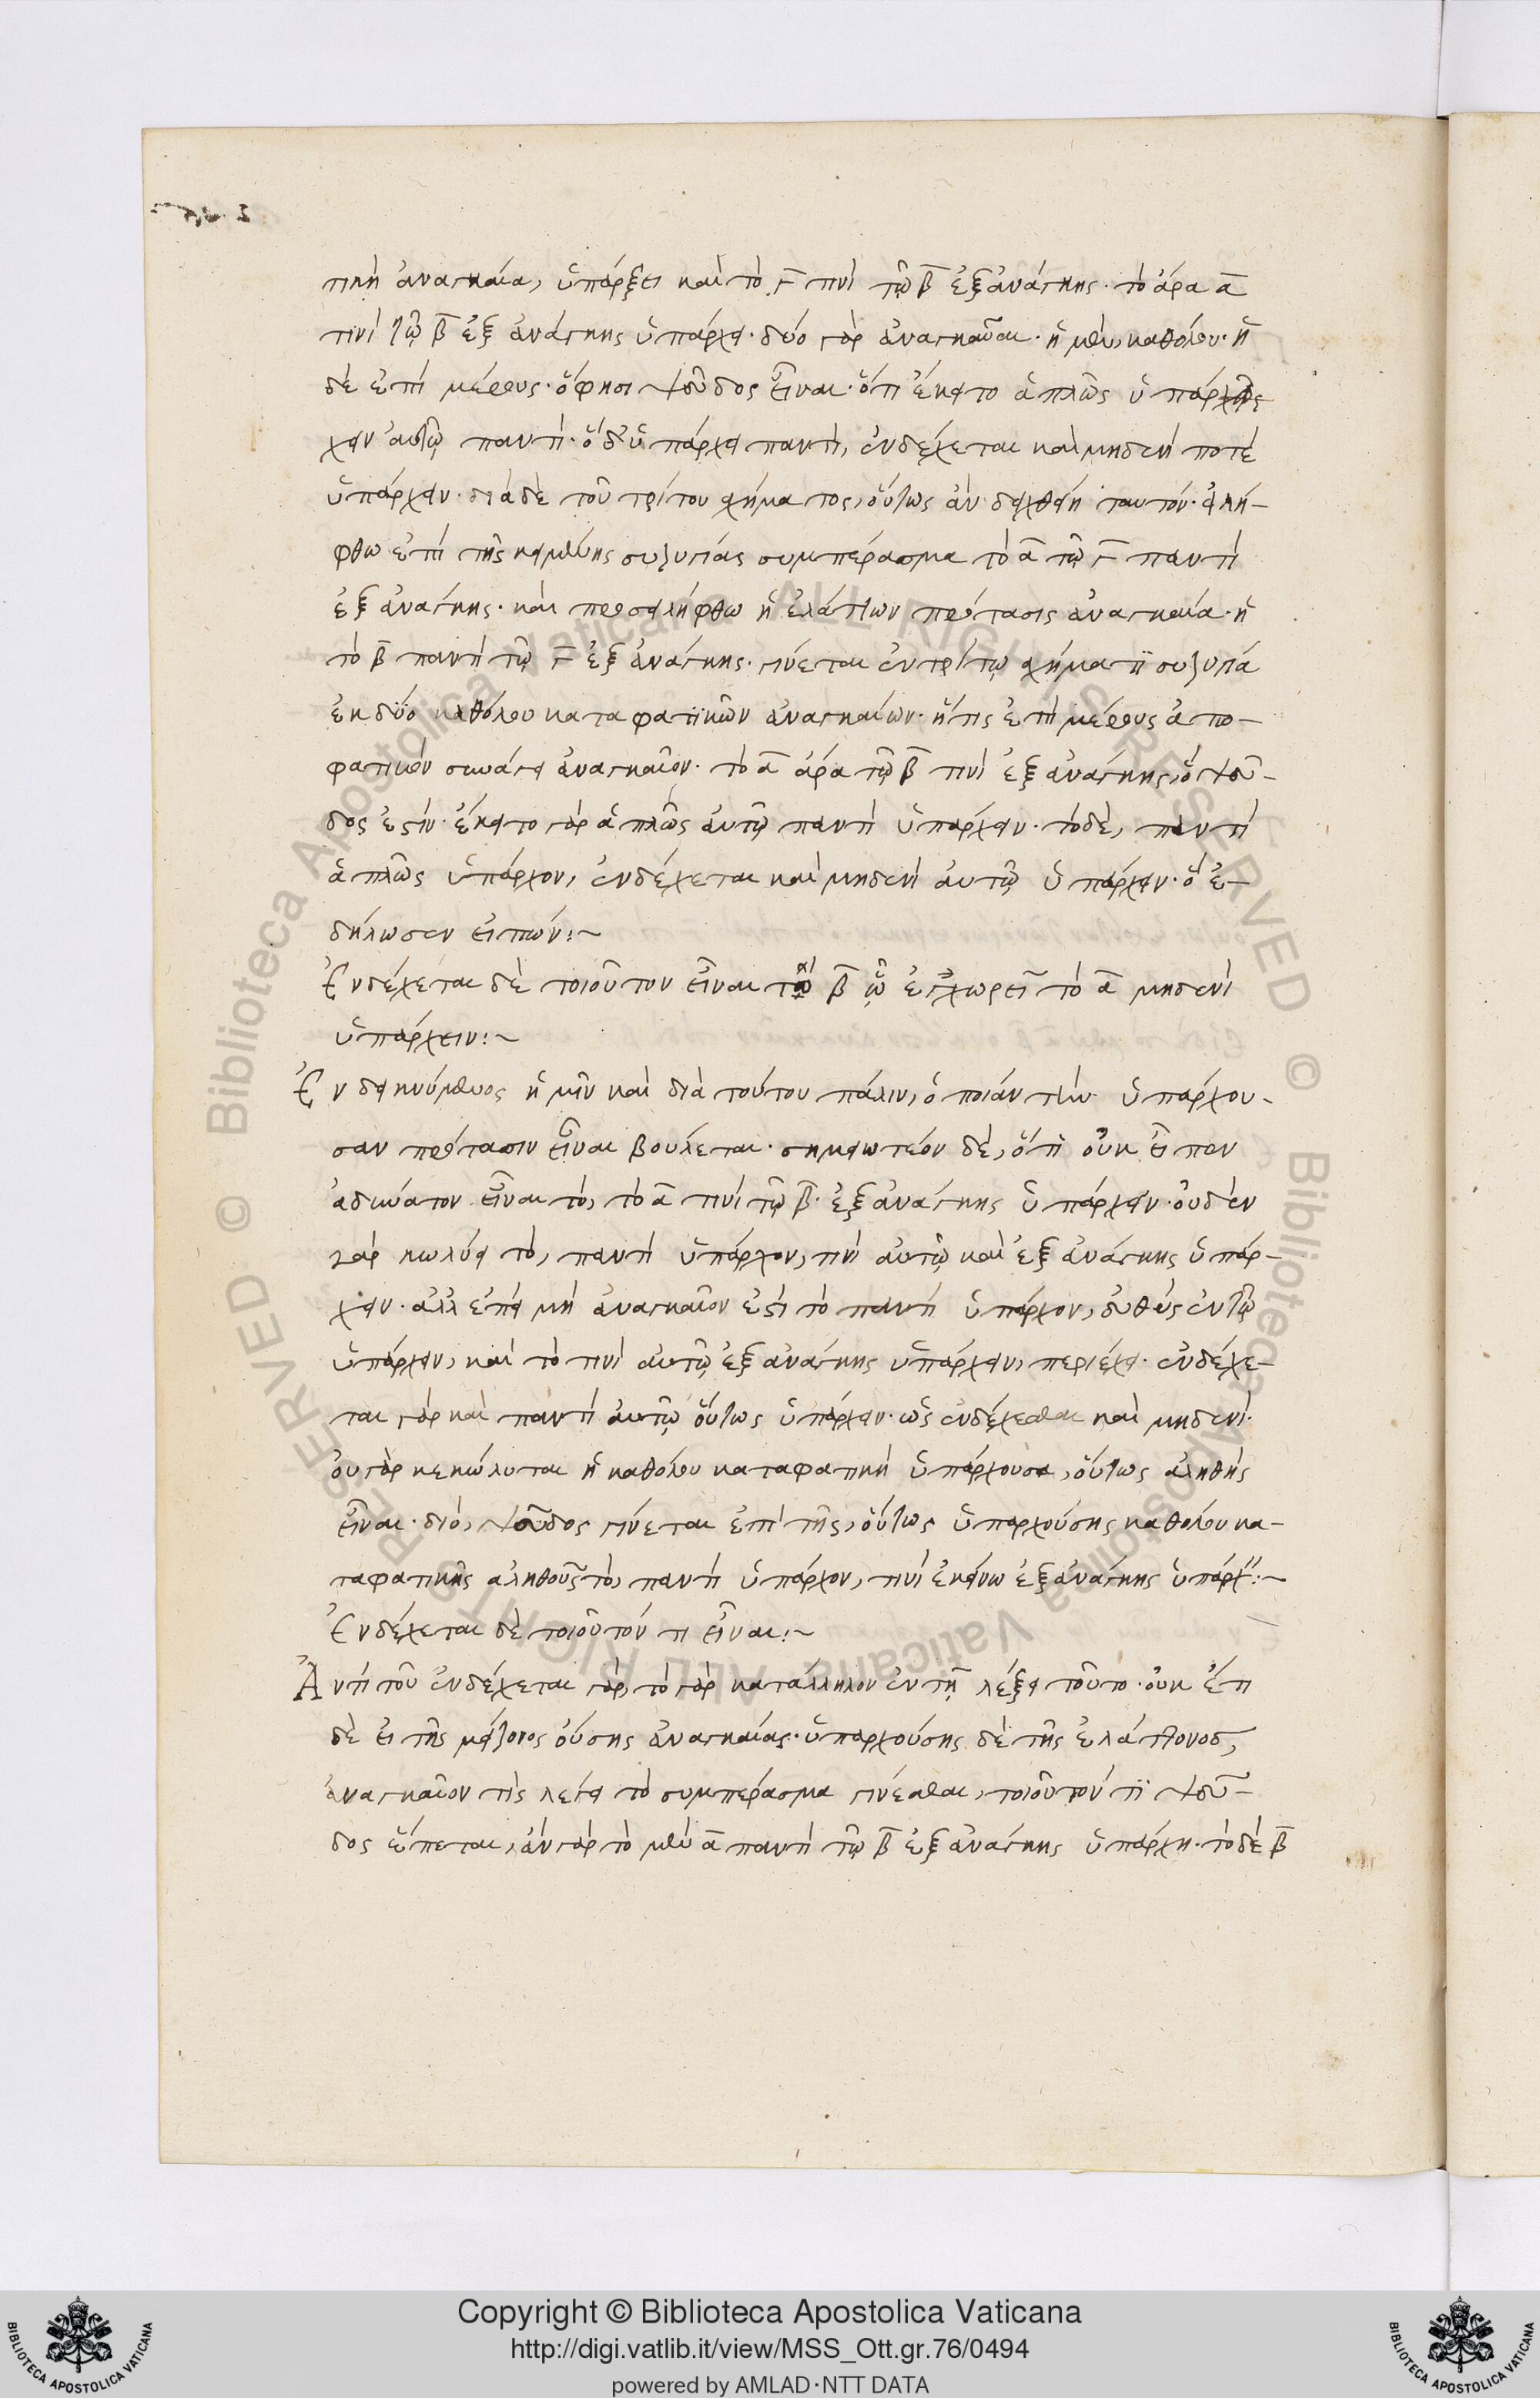 τικὴ ἀναγκαία, ὑπάρξει καὶ τὸ Γ τινὶ τῷ β ἐξανάγκης· τὸ ἄρα α
τινὶ τῷ β ἐξ ἀνάγκης ὑπάρχει· δύο γὰρ ἀναγκαῖαι· ἡ μὲν, καθόλου· ἡ
δὲ ἐπὶ μέρους· ὅ φησι ψεῦδος εἶναι· ὅτι ἔκειτο ἁπλῶς ὑπάρ
χειν αὐτῷ παντί· ὃ δ' ὑπάρχει παντὶ, ἐνδέχεται καὶ μηδενί ποτε
ὑπάρχειν· διὰ δὲ τοῦ τρίτου σχήματος, οὕτως ἂν δειχθείη ταυτόν· εἰλή-
φθω ἐπὶ τῆς κειμένης συζυγίας συμπέρασμα τὸ α τῷ Γ παντὶ
ἐξ ἀνάγκης· καὶ προσειλήφθω ἡ ἐλάττων πρότασις ἀναγκαία· ἡ
τὸ β παντὶ τῷ Γ ἐξ ἀνάγκης· γίνεται ἐν τρίτῳ σχήματι συζυγία
ἐκ δύο καθόλου καταφατικῶν ἀναγκαίων· ἥτις ἐπὶ μέρους ἀπο-
φατικὸν συνάγει ἀναγκαῖον· τὸ α ἄρα τῷ β τινὶ ἐξ ἀνάγκης, ὃ ψεῦ-
δος ἐστίν· ἔκειτο γὰρ ἁπλῶς αὐτῷ παντὶ ὑπάρχειν· τὸ δὲ, παντὶ
ἁπλῶς ὑπάρχον, ἐνδέχεται καὶ μηδενὶ αὐτῷ ὑπάρχειν· ὃ ἐ-
δήλωσεν εἰπών:~
Ἐνδέχεται δὲ τοιοῦτον εἶναι τὸ β ᾧ ἐγχωρεῖ τὸ α μηδενὶ
ὑπάρχειν:~
Ἐνδεικνύμενος ἡμῖν καὶ διὰ τούτου πάλιν, ὁποίαν τὴν ὑπάρχου-
σαν πρότασιν εἶναι βούλεται· σημειωτέον δὲ, ὅτι οὐκ εἶπεν
ἀδύνατον εἶναι τὸ, τὸ α τινὶ τῷ β· ἐξ ἀνάγκης ὑπάρχειν· οὐδὲν
γὰρ κωλύει τὸ, παντὶ ὑπάρχον, τινὶ αὐτῷ καὶ ἐξ ἀνάγκης ὑπάρ-
χειν· ἀλλ' ἐπεὶ μὴ ἀναγκαῖον ἐστὶ τὸ παντὶ ὑπάρχον, εὐθὺς ἐν τῷ
ὑπάρχειν, καὶ τὸ τινὶ αὐτῷ ἐξ ἀνάγκης ὑπάρχειν, περιέχει· ἐνδέχε-
ται γὰρ καὶ παντὶ αὐτῷ οὕτως ὑπάρχειν· ὡς ἐνδέχεσθαι καὶ μηδενί·
οὐ γὰρ κεκώλυται ἡ καθόλου καταφατικὴ ὑπάρχουσα, οὕτως ἀληθὴς
εἶναι· διὸ, ψεῦδος γίνεται ἐπὶ τῆς, οὕτως ὑπαρχούσης καθόλου κα-
ταφατικῆς ἀληθοῦς τὸ, παντὶ ὑπάρχον, τινὶ ἐκείνῳ ἐξ ἀνάγκης ὑπάρχ:~
Ἐνδέχεται δὲ τοιοῦτόν τι εἶναι:~
Ἀντὶ τοῦ ἐνδέχεται γὰρ, τὸ γὰρ κατάλληλον ἐν τῇ λέξει τοῦτο· οὐκ ἔτι
δὲ εἰ τῆς μείζονος οὔσης ἀναγκαίας· ὑπαρχούσης δὲ τῆς ἐλάττονος,
ἀναγκαῖον τὶς λέγει τὸ συμπέρασμα γίνεσθαι, τοιοῦτόν τι ψεῦ-
δος ἕπεται, ἂν γὰρ τὸ μὲν α παντὶ τῷ β ἐξ ἀνάγκης ὑπάρχη· τὸ δὲ β
Copyright © Biblioteca Apostolica Vaticana
http://digi.vatlib.it/view/MSS_Ott.gr.76/0494
powered by AMLAD·NTT DATA